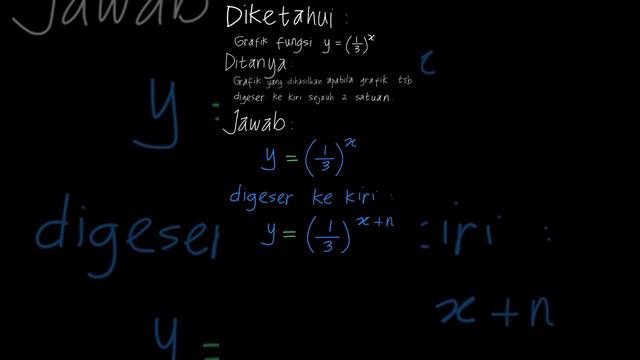 Diketahui :
Grafik fungsi y = (1/3)^x
Ditanya :
Grafik yang dihasilkan apabila grafik tsb
digeser ke kiri sejauh 2 satuan.
Jawab :
y = (1/3)^x
digeser ke kiri :
y = (1/3)^(x+n)